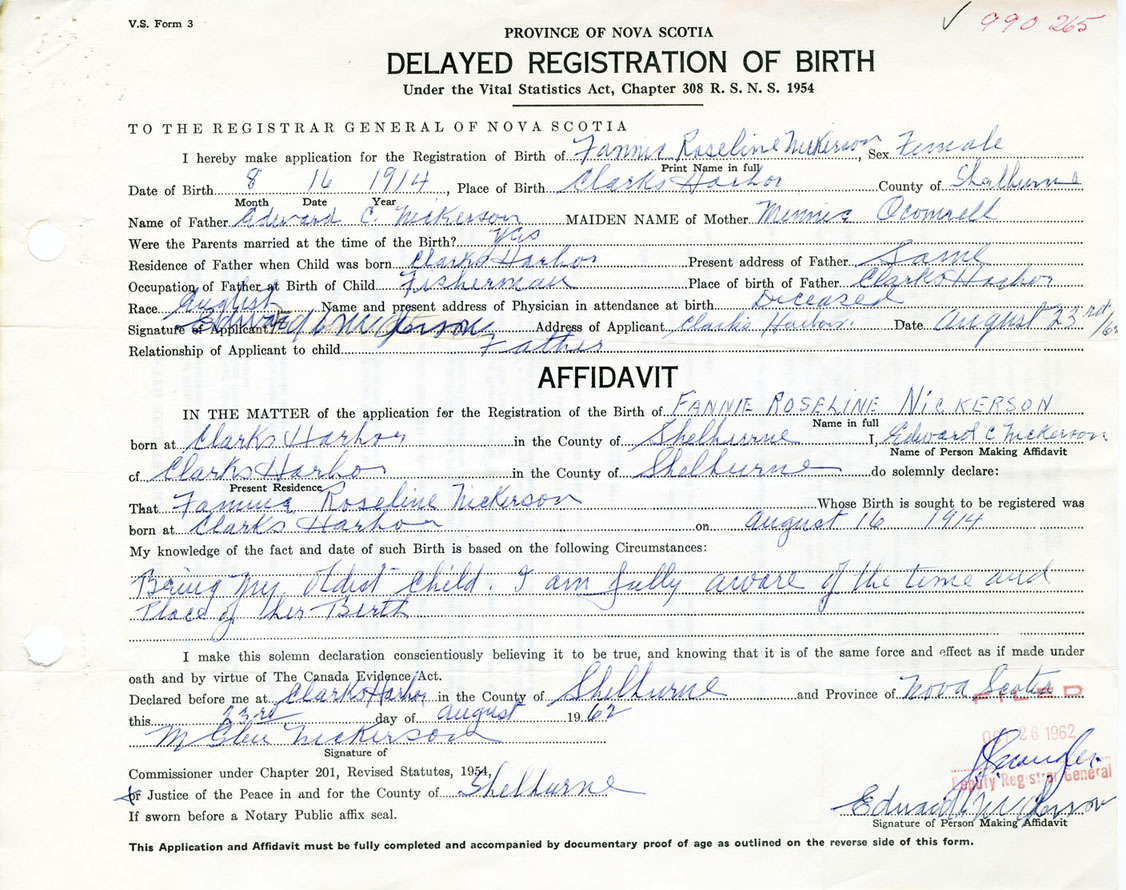 V.S. Form 3
✓ 990 265
PROVINCE OF NOVA SCOTIA
DELAYED REGISTRATION OF BIRTH
Under the Vital Statistics Act, Chapter 308 R. S. N. S. 1954
TO THE REGISTRAR GENERAL OF NOVA SCOTIA
I hereby make application for the Registration of Birth of Fannie Roseline Nickerson, Sex Female
Print Name in full
Date of Birth 8 16 1914, Place of Birth Clarks Harbor County of Shelburne
Month Date Year
Name of Father Edward C. Nickerson MAIDEN NAME of Mother Minnie
Were the Parents married at the time of the Birth? Yes
Residence of Father when Child was born Clarks Harbor Present address of Father Same
Occupation of Father at Birth of Child Fisherman Place of birth of Father Clarks Harbor
Race English Name and present address of Physician in attendance at birth Diceased
Signature of Applicant Edward C Nickerson Address of Applicant Clarks Harbor. Date August 23rd/62
Relationship of Applicant to child Father
AFFIDAVIT
IN THE MATTER of the application for the Registration of the Birth of FANNIE ROSELINE NICKERSON
Name in full
born at Clarks Harbor in the County of Shelburne I, Edward C Nickerson
Name of Person Making Affidavit
of Clarks Harbor in the County of Shelburne do solemnly declare:
Present Residence
That Fannie Roseline Nickerson Whose Birth is sought to be registered was
born at Clarks Harbor on august 16 1914
My knowledge of the fact and date of such Birth is based on the following Circumstances:
Being my oldest child. I am fully aware of the time and
Place of her Birth
I make this solemn declaration conscientiously believing it to be true, and knowing that it is of the same force and effect as if made under
oath and by virtue of The Canada Evidence Act.
Declared before me at Clarks Harbor in the County of Shelburne and Province of Nova Scotia
FILED
this 23rd day of august 1962
M Glen Nickerson
26 1962
Signature of
Commissioner under Chapter 201, Revised Statutes, 1954,
Deputy Registrar General
or Justice of the Peace in and for the County of Shelburne
Edward C Nickerson
If sworn before a Notary Public affix seal.
Signature of Person Making Affidavit
This Application and Affidavit must be fully completed and accompanied by documentary proof of age as outlined on the reverse side of this form.